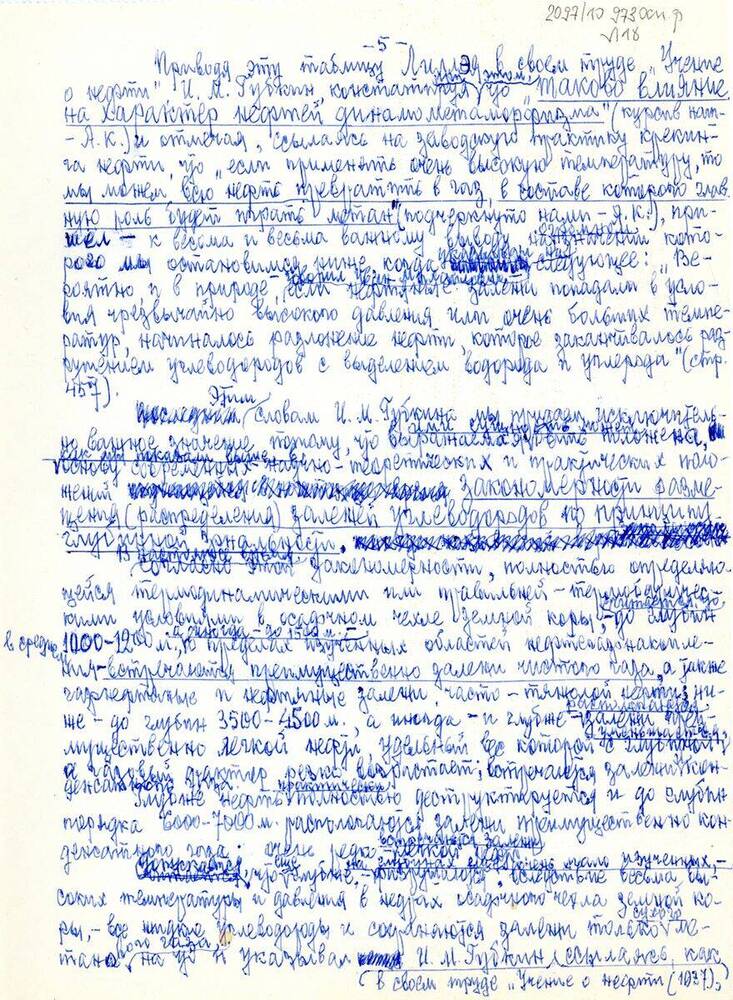 2097/10 973 оп.ф
л18
-5-
Приводя эту таблицу Лиллэя в своем труде „Учение
о нефти" И. М. Губкин, констатируя при этом, что „таково влияние
на характер нефтей динамометаморфизма" (курсив наш-
-А.К.) и отмечая, ссылаясь на заводскую практику крекин-
га нефти, что „если применять очень высокую температуру, то
мы можем всю нефть превратить в газ, в составе которого глав-
ную роль будет играть метан" (подчеркнуто нами - А.К.), при-
шел - к весьма и весьма важному выводу, на значении кото-
рого мы остановимся ниже, когда следующее: „Ве-
роятно и в природе, если нефтяные залежи попадали в усло-
вия чрезвычайно высокого давления или очень больших темпе-
ратур, начиналось разложение нефти, которое заканчивалось раз-
рушением углеводородов с выделением водорода и углерода" (стр.
457).
Этим
словам И. М. Губкина мы придаем исключитель-
но важное значение потому, что
как мы показали выше
основу современных научно-теоретических и практических поло-
жений закономерности разме-
щения (распределения) залежей углеводородов по принципу
глубинной зональности.
Согласно этой закономерности, полностью определяю-
щейся термодинамическими или правильней - термобаричес-
кими условиями в осадочном чехле земной коры, - до глубин
в среднем 1000-1200 м., а иногда - до 1500 м. в пределах изученных областей нефтегазонакопле-
ния - встречаются преимущественно залежи чистого газа, а также
газонефтяные и нефтяные залежи, часто - тяжелой нефти; ни-
располагаются
же - до глубин 3500-4500 м., а иногда - и глубже - залежи преи-
уменьшается,
мущественно легкой нефти, удельный вес которой с глубиной
а газовый фактор резко возрастает; встречаются залежи кон-
денсатного газа.
практически
Глубже нефть полностью деструктируется и до глубин
порядка 6000-7000 м. располагаются залежи преимущественно кон-
встречаются залежи
денсатного газа; очень редко - легкой нефти.
еще на глубинах очень мало изученных, -
что глубже, - разрушаются, вследствие весьма вы-
соких температуры и давления в недрах осадочного чехла земной ко-
сухого
ры, - все жидкие углеводороды и сохраняются залежи только ме-
танового газа, на что и указывал И. М. Губкин, ссылаясь, как
(в своем труде „Учение о нефти (1937),